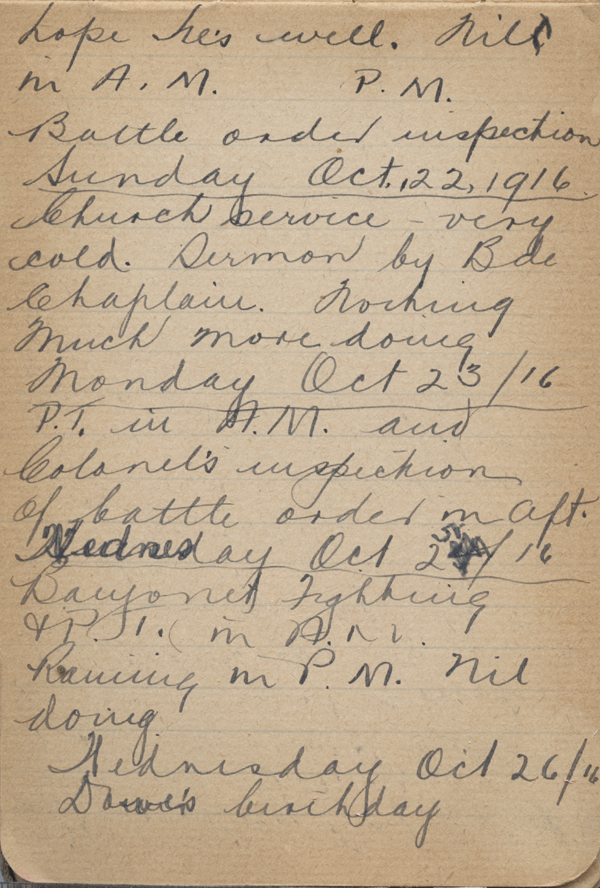 hope he's well. Nil
in A.M. P.M.
Battle order inspection
Sunday Oct. 22, 1916.
Church service - very
cold. Sermon by Bde
Chaplain. Nothing
much more doing
Monday Oct 23/16
P.T. in A.M. and
Colonel's inspection
of battle order in aft.
Wednesday Oct 25/16
Bayonet Fighting
& P.T. in A.M.
Raining in P.M. Nil
doing
Wednesday Oct 26/16
birthday